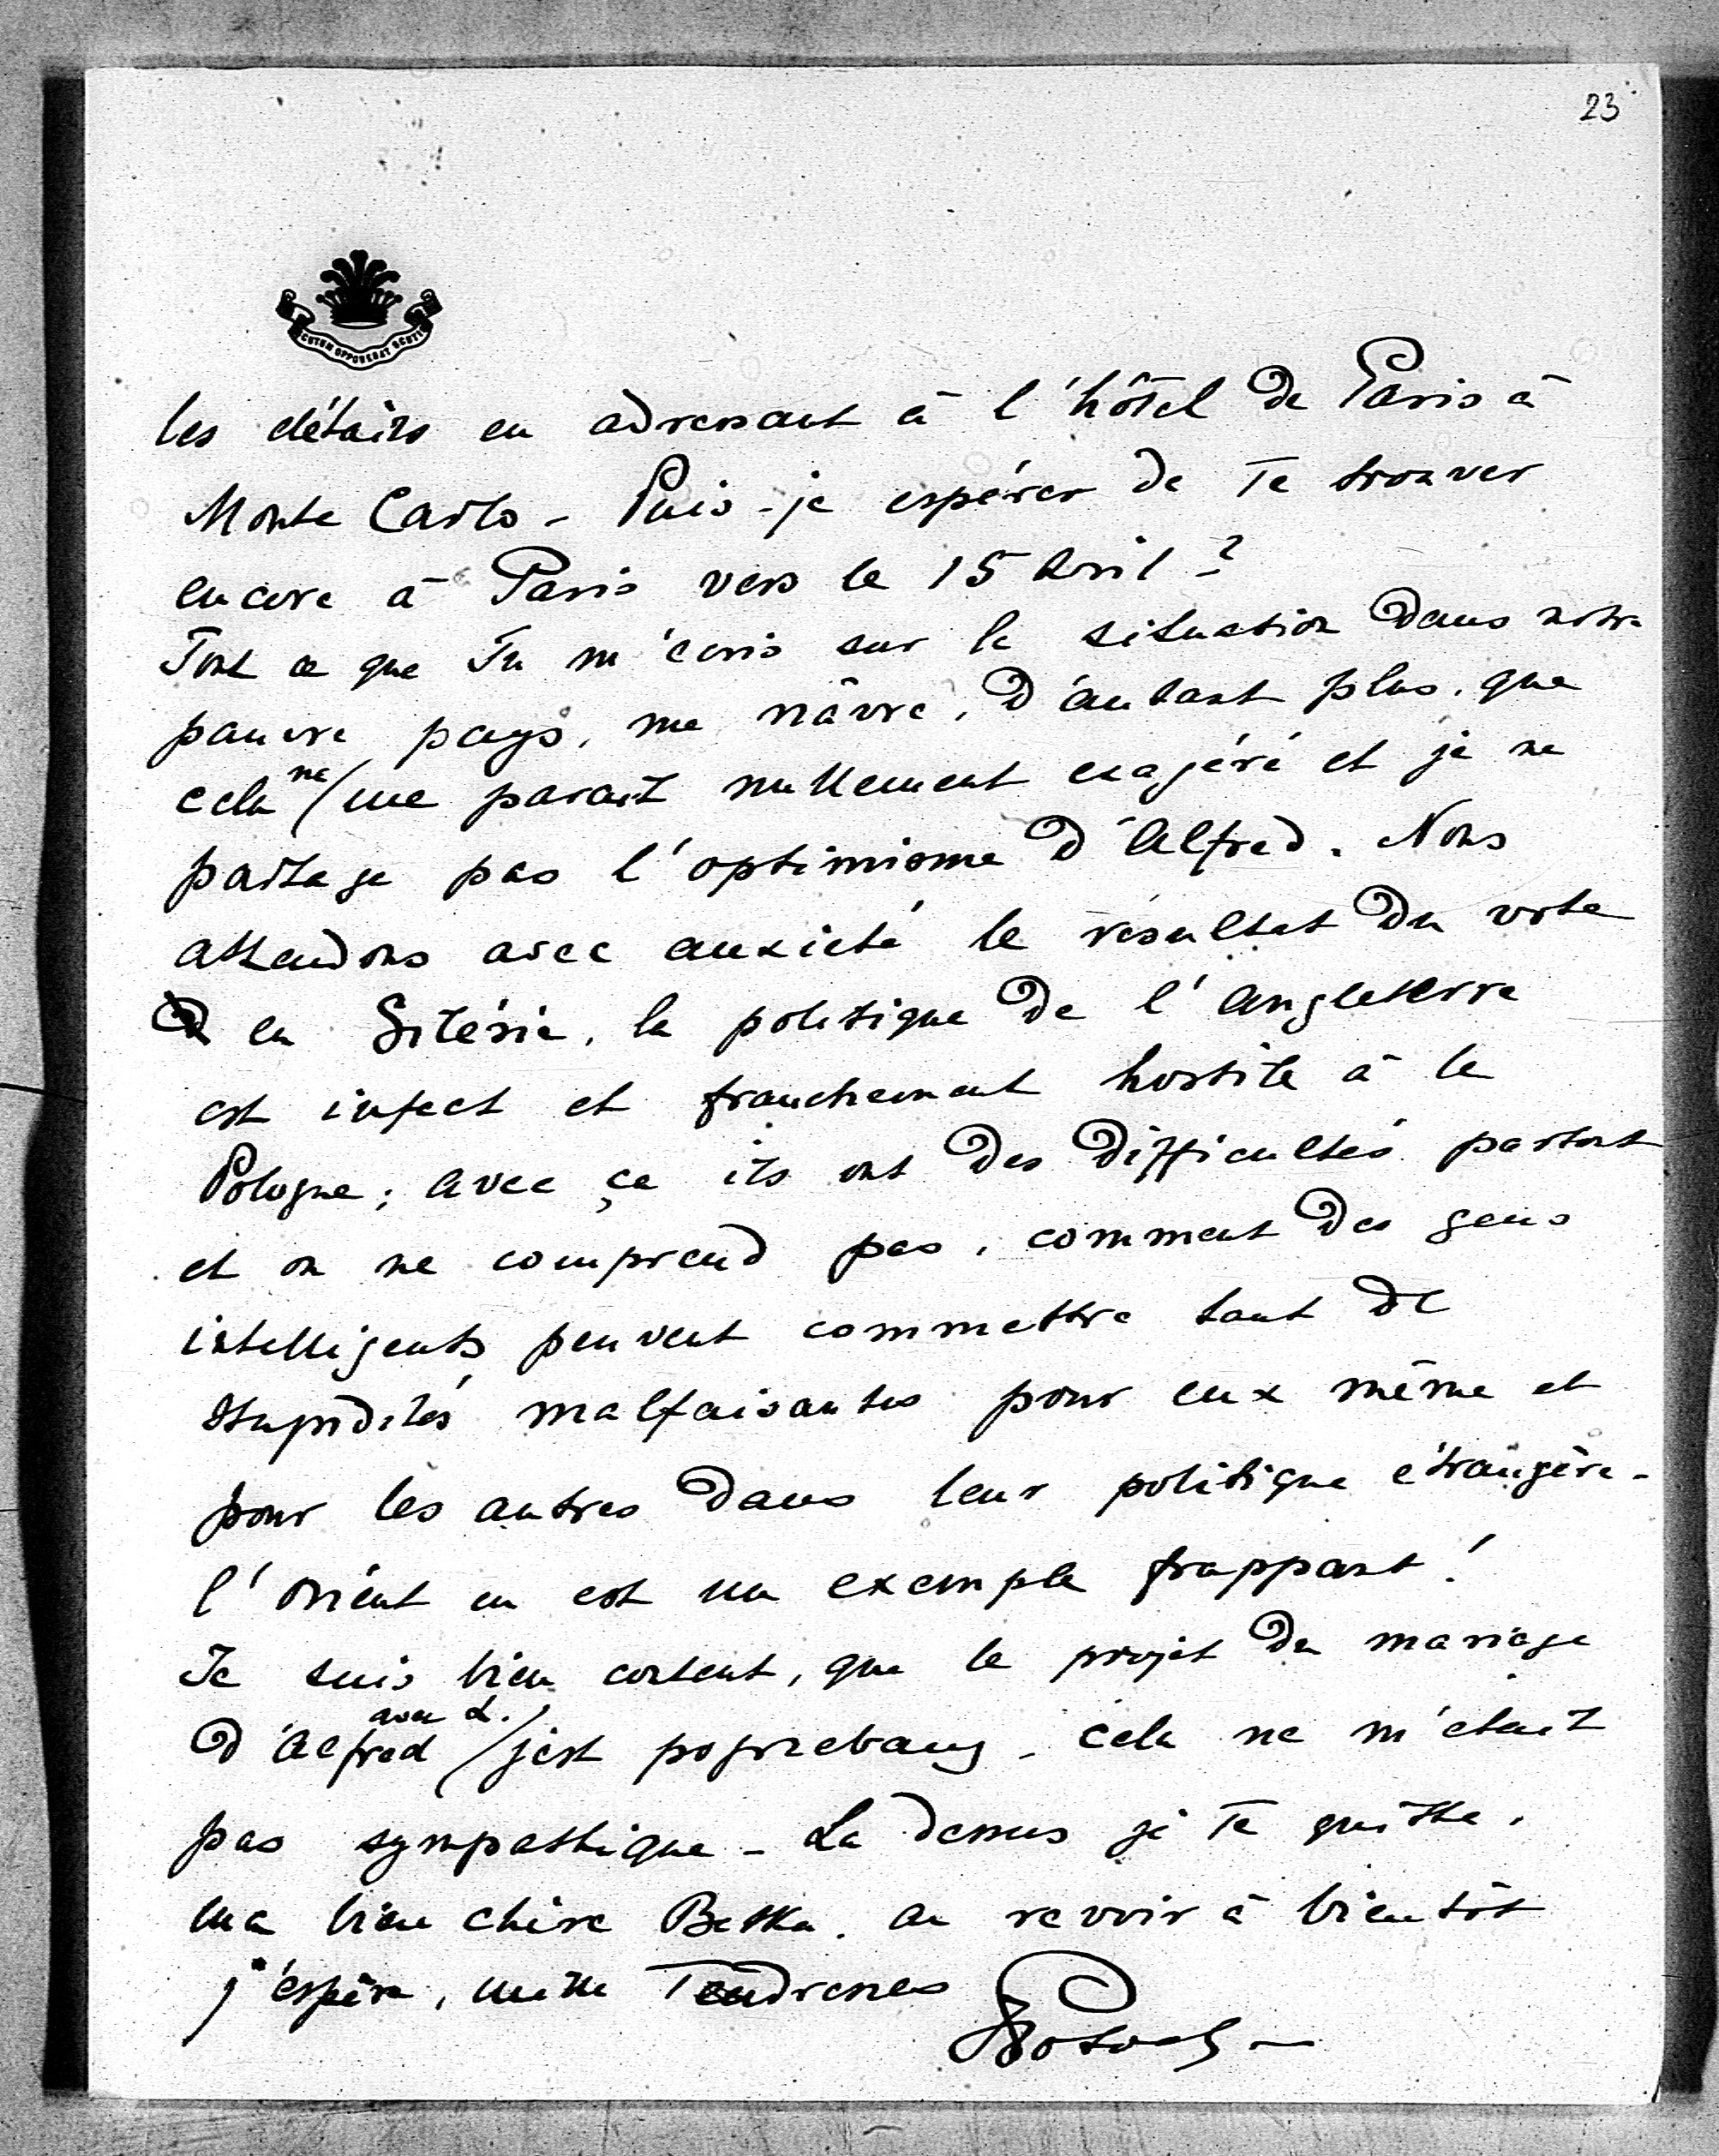 23
SCUTUM OPPONEBAT SCUTIS
les détails en adressant à l'hôtel de Paris à
Monte Carlo - Puis-je espérer de Te trouver
encore à Paris vers le 15 Avril ?
Tout ce que Tu m'écris sur la situation dans notre
pauvre pays, me nâvre, d'autant plus, que
cela ne me parait nullement exagéré et je ne
partage pas l'optimisme d'Alfred. Nous
attendons avec anxieté le résultat du vote
en Silésie, la politique de l'Angleterre
est infect et franchement hostile à la
Pologne; avec ça ils ont des difficultés partout
et on ne comprend pas, comment des gens
intelligents peuvent commettre tant de
stupidités malfaisantes pour eux même et
pour les autres dans leur politique étrangère -
l'Orient en est un exemple frappant !
Je suis bien content, que le projet du mariage
d'Alfred avec L. jest pogrzebany - cela ne m'était
pas sympathique - Là dessus je Te quitte,
ma bien chère Betka. au revoir à bientôt
j'espère, mille Tendresses